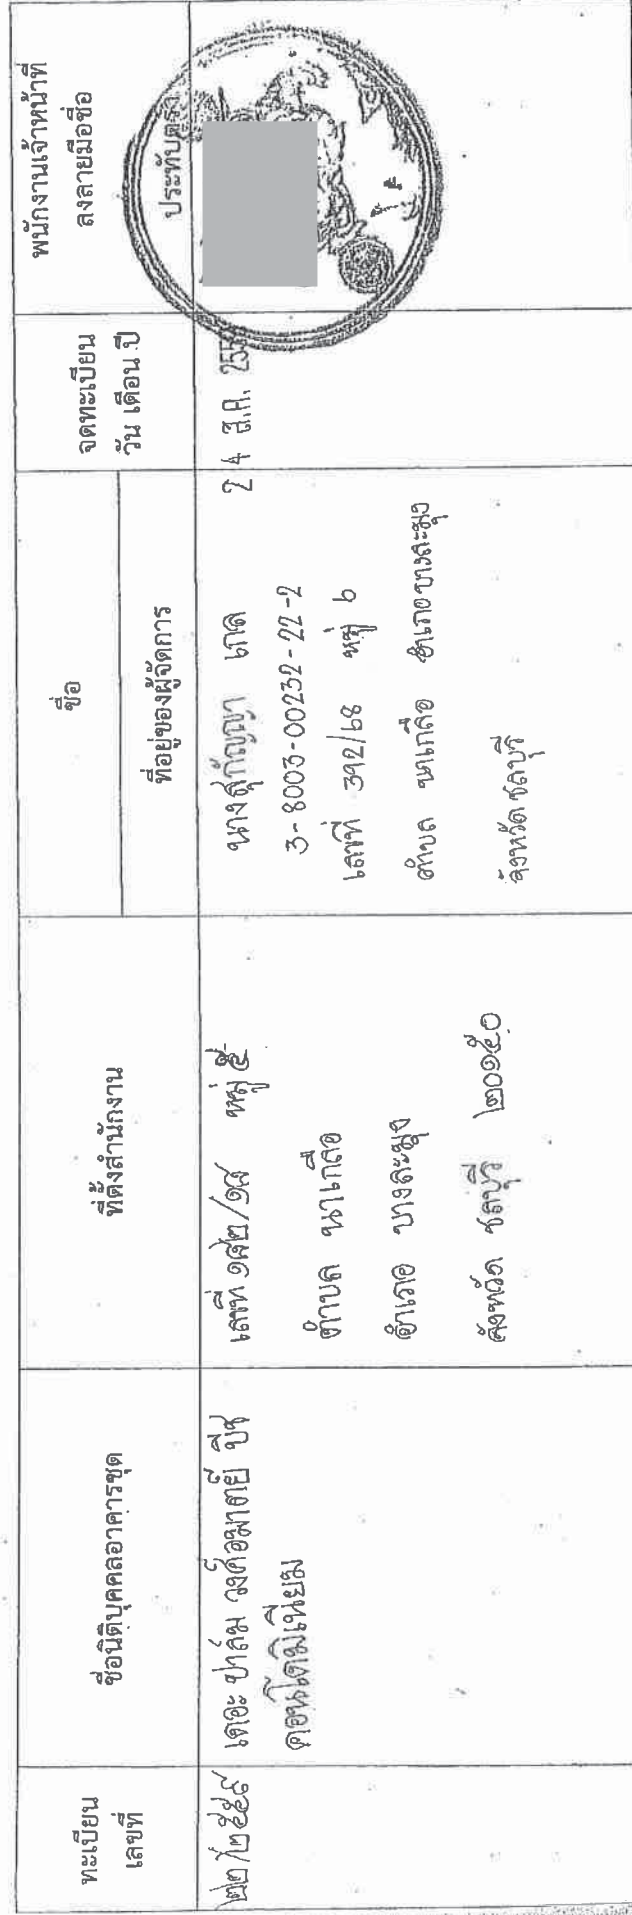 ทะเบียน
เลขที่
ชื่อนิติบุคคลอาคารชุด
ที่ตั้งสำนักงาน
ชื่อ
ที่อยู่ของผู้จัดการ
จดทะเบียน
วัน เดือน ปี
พนักงานเจ้าหน้าที่
ลงลายมือชื่อ
ประทับตรา
๒๒/๒๕๕๙
เดอะ ปาล์ม วงศ์อมาตย์ บีช
คอนโดมิเนียม
เลขที่ ๑๙๒/๑๙ หมู่ ๕
ตำบล นาเกลือ
อำเภอ บางละมุง
จังหวัด ชลบุรี ๒๐๑๕๐
นางสุกัญญา เกล
3-8003-00232-22-2
เลขที่ 392/68 หมู่ 6
ตำบล นาเกลือ อำเภอบางละมุง
จังหวัดชลบุรี
24 ส.ค. 255